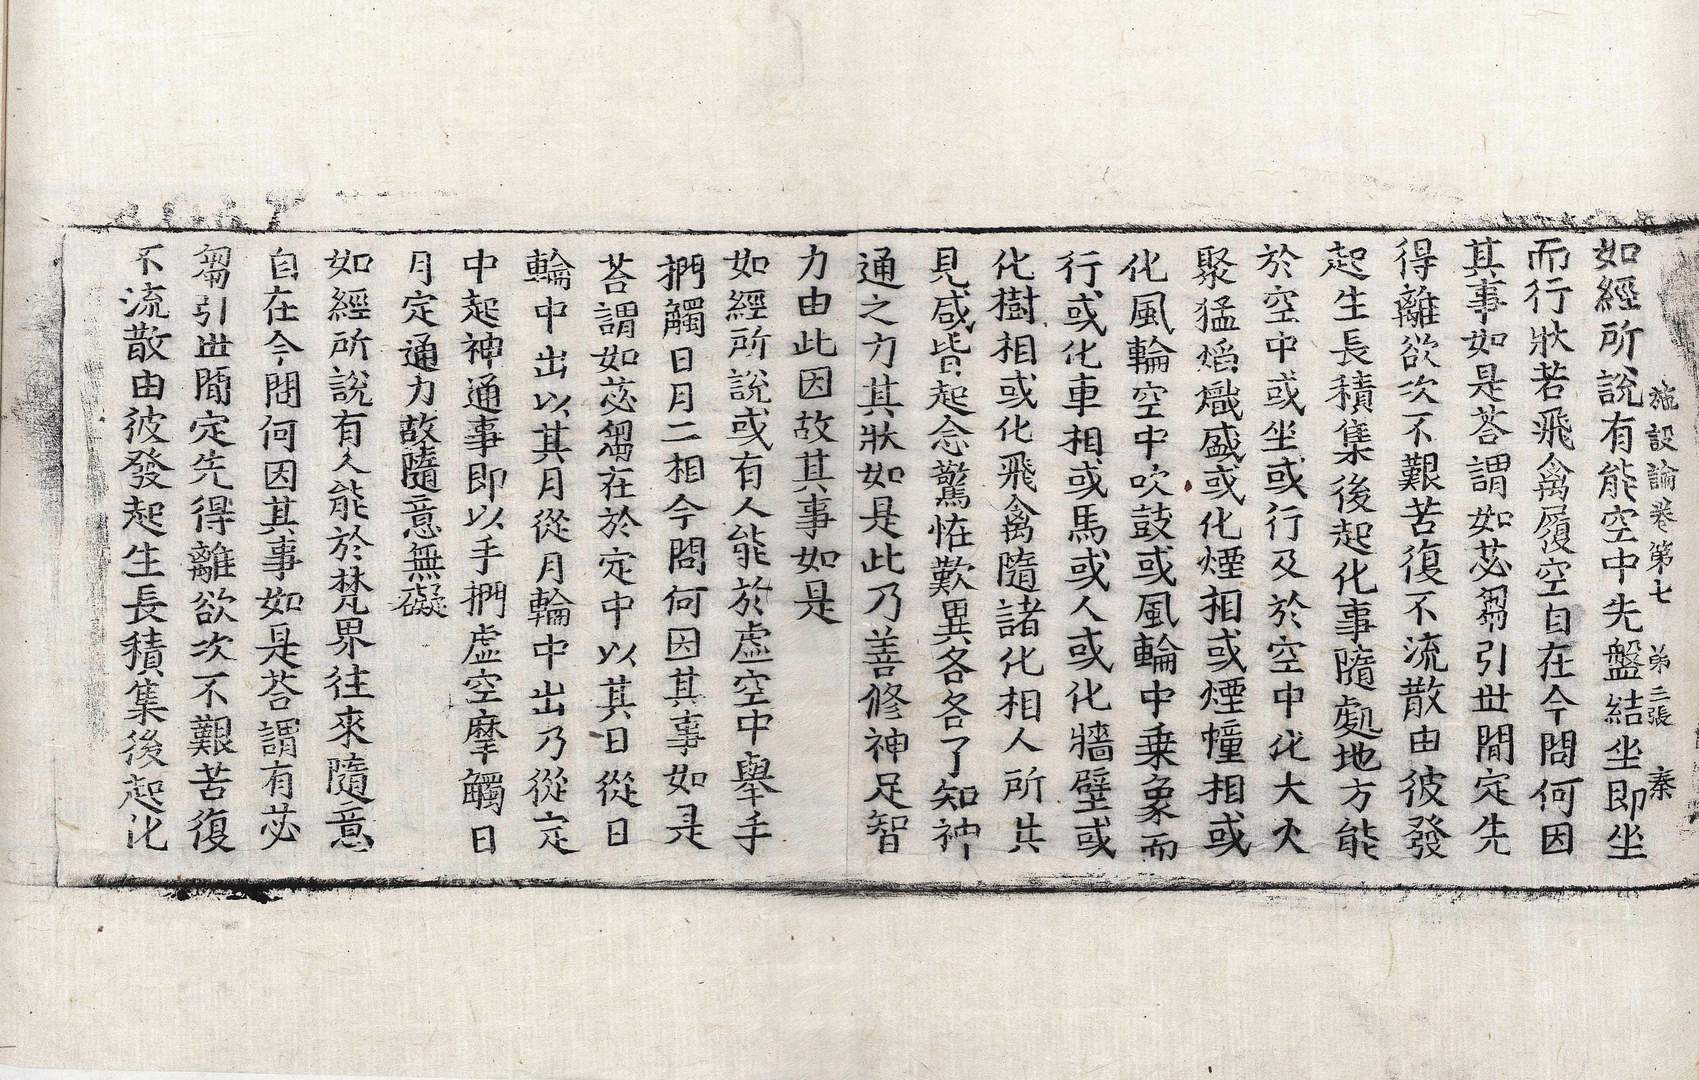 施設論卷第七 第三張 秦
如經所說有能空中先盤結坐即坐
而行狀若飛禽履空自在今問何因
其事如是荅謂如苾芻引世間定先
得離欲次不艱苦復不流散由彼發
起生長積集後起化事隨處地方能
於空中或坐或行及於空中化大火
聚猛焰熾盛或化煙相或煙幢相或
化風輪空中吹鼓或風輪中乗象而
行或化車相或馬或人或化牆壁或
化樹相或化飛禽隨諸化相人所共
見咸皆起念驚恠歎異各各了知神
通之力其狀如是此乃善修神足智
力由此因故其事如是
如經所說或有人能於虛空中舉手
捫觸日月二相今問何因其事如是
荅謂如苾芻在於定中以其日從日
輪中出以其月從月輪中出乃從定
中起神通事即以手捫虛空摩觸日
月定通力故隨意無礙
如經所說有人能於梵界往來隨意
自在今問何因其事如是荅謂有苾
芻引世間定先得離欲次不艱苦復
不流散由彼發起生長積集後起化